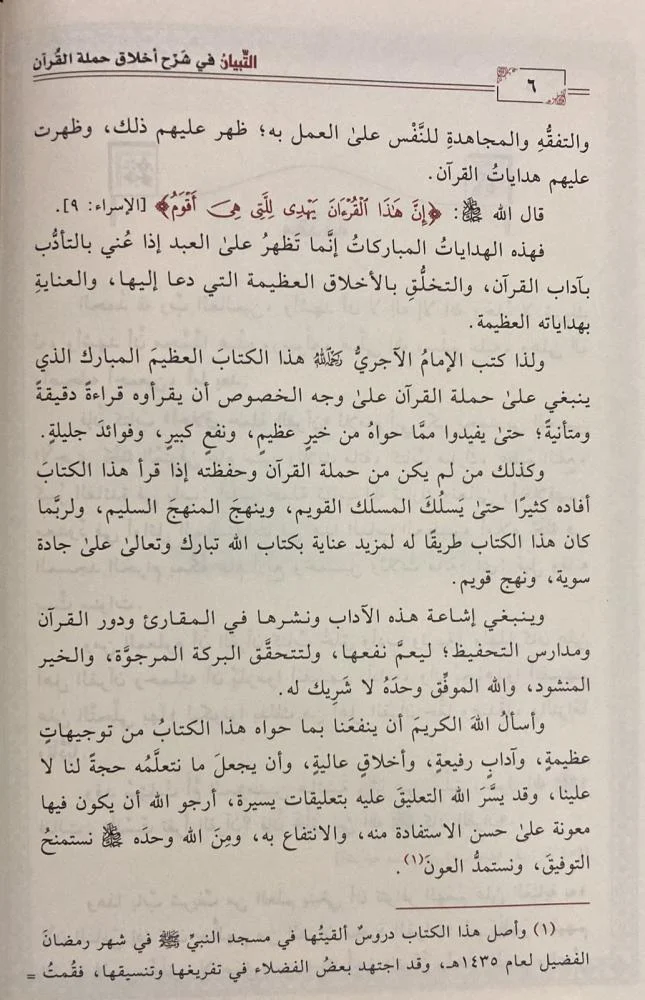 التِّبيان في شَرْح أخلاق حملة القُرآن
٦
والتفقُّهِ والمجاهدةِ للنَّفْس علىٰ العمل به؛ ظهر عليهم ذلك، وظهرت
عليهم هداياتُ القرآن.
قال الله ﷻ: ﴿إِنَّ هَٰذَا ٱلْقُرْءَانَ يَهْدِى لِلَّتِى هِىَ أَقْوَمُ﴾ [الإسراء: ٩].
فهذه الهداياتُ المباركاتُ إنَّما تَظهرُ علىٰ العبد إذا عُني بالتأدُّب
بآداب القرآن، والتخلُّقِ بالأخلاق العظيمة التي دعا إليها، والعنايةِ
بهداياته العظيمة.
ولذا كتب الإمامُ الآجريُّ رَحِمَهُ ٱللَّهُ هذا الكتابَ العظيمَ المبارك الذي
ينبغي علىٰ حملة القرآن علىٰ وجه الخصوص أن يقرأوه قراءةً دقيقةً
ومتأنيةً؛ حتىٰ يفيدوا ممَّا حواهُ من خيرٍ عظيمٍ، ونفعٍ كبيرٍ، وفوائدَ جليلةٍ.
وكذلك من لم يكن من حملة القرآن وحفظته إذا قرأ هذا الكتابَ
أفاده كثيرًا حتىٰ يَسلُكَ المسلَك القويم، وينهجَ المنهجَ السليم، ولربَّما
كان هذا الكتاب طريقًا له لمزيد عناية بكتاب الله تبارك وتعالىٰ علىٰ جادة
سوية، ونهج قويم.
وينبغي إشاعة هذه الآداب ونشرها في المقارئ ودور القرآن
ومدارس التحفيظ؛ ليعمَّ نفعها، ولتتحقَّق البركة المرجوَّة، والخير
المنشود، والله الموفِّق وحدَهُ لا شَرِيك له.
وأسألُ اللهَ الكريمَ أن ينفعَنا بما حواه هذا الكتابُ من توجيهاتٍ
عظيمةٍ، وآدابٍ رفيعةٍ، وأخلاقٍ عاليةٍ، وأن يجعلَ ما نتعلَّمُه حجةً لنا لا
علينا، وقد يسَّرَ الله التعليقَ عليه بتعليقات يسيرة، أرجو الله أن يكون فيها
معونة علىٰ حسن الاستفادة منه، والانتفاع به، ومِنَ الله وحدَه ﷻ نستمنحُ
التوفيقَ، ونستمدُّ العونَ(١).
(١) وأصل هذا الكتاب دروسٌ ألقيتُها في مسجد النبيِّ ﷺ في شهر رمضانَ
الفضيل لعام ١٤٣٥هـ، وقد اجتهد بعضُ الفضلاء في تفريغها وتنسيقها، فقمتُ =